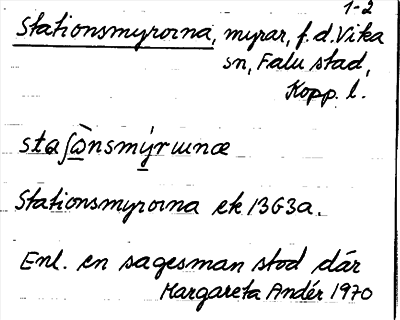 1-2
Stationsmyrorna, myrar, f.d. Vika
sn, Falu stad,
Kopp. l.
staʃὼnsmýrɯnæ
Stationsmyrorna ek 13G3a.
Enl. en sagesman stod där
Margareta Andér 1970